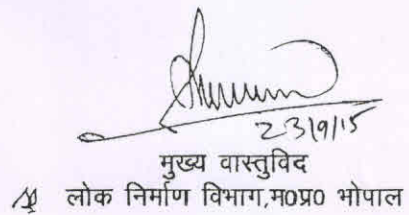 23/9/15
मुख्य वास्तुविद
लोक निर्माण विभाग,म0प्र0 भोपाल